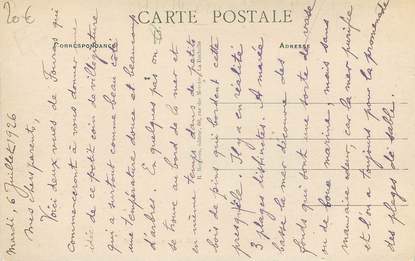 20€
CARTE POSTALE
CORRESPONDANCE
ADRESSE
Mardi, 6 Juillet 1926
Mes chers parents,
Voici deux vues de Fouras qui
commenceront à vous donner une
idée de ce petit coin de villégiature
qui a surtout comme beau côté
une température douce et beaucoup
d'arbres. En quelques pas on
se trouve au bord de la mer et
en même temps dans de petits
bois de pins qui bordent cette
presqu'île. Il y a en réalité
3 plages distinctes. A marée
basse la mer découvre des
fonds qui sont une sorte de vase
ou de boue marine, mais sans
mauvaise odeur, car la mer purifie
et l'on a toujours pour la promenade
des plages de sable.